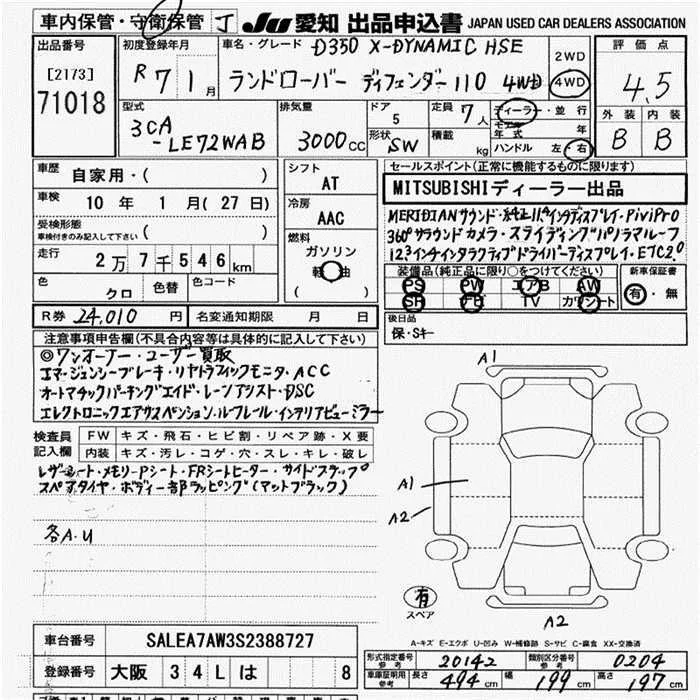 車内保管・守衛保管 J JU 愛知 出品申込書 JAPAN USED CAR DEALERS ASSOCIATION
出品番号
[2173]
71018
初度登録年月
R 7 1月
車名・グレード D350 X-DYNAMIC HSE
ランドローバー ディフェンダー110 4WD
2WD
4WD
評価点
4.5
外装 内装
B B
型式
3CA
-LE72WAB
排気量
3000cc
ドア
5
形状 SW
定員 7人
積載 kg
ディーラー・並行
年式 年
ハンドル 左・右
車歴 自家用・( )
車検 10年 1月(27日)
受検形態
車検付きのみ記入して下さい ( )
走行 2万7千546km
色 クロ 色替 色コード
シフト
AT
冷房
AAC
燃料
ガソリン
軽油
( )
R券 24,010円 名変通知期限 月 日
セールスポイント(正常に機能するものに限ります)
MITSUBISHIディーラー出品
MERIDIANサウンド・11.4インタディスプレイ・PiviPro
360°サラウンドカメラ・スライディングパノラマルーフ
12.3インチインタラクティブドライバーディスプレイ・ETC2.0
装備品(純正品に限り○をつけてください)
PS PW エアB AW
SR ナビ TV カワシート
新車保証書
有・無
後日品
保・Sキー
注意事項申告欄(不具合内容等は具体的に記入して下さい)
◎ワンオーナー・ユーザー買取
エマージェンシーブレーキ・リヤトラフィックモニタ・ACC
オートマチックパーキングエイド・レーンアシスト・DSC
エレクトロニックエアサスペンション・ルーフレール・インテリアビューミラー
検査員
記入欄
FW キズ・飛石・ヒビ割・リペア跡・X要
内装 キズ・汚レ・コゲ・穴・スレ・キレ・破レ
レザーシート・メモリードシート・FRシートヒーター・サイドステップ
スペアタイヤ・ボディ一部ラッピング(マットブラック)
各A.U
A1
A1
A2
有
スペア
A2
A-キズ E-エクボ U-凹み W-補修跡 S-サビ C-腐食 XX-交換済
車台番号 SALEA7AW3S2388727
登録番号 大阪 34L は 8
形式指定番号 参考 20142 類別区分番号 参考 0204
車庫証明用 参考 長さ 494cm 幅 199cm 高さ 197cm